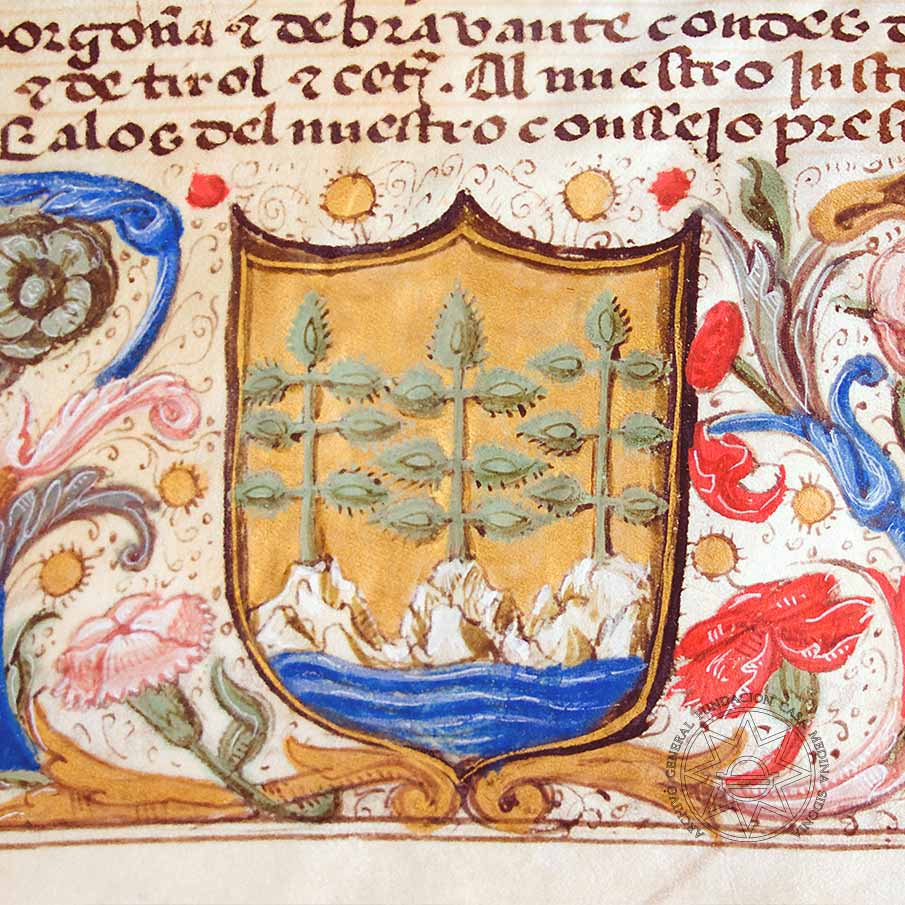 borgoña ⁊ de bravante condes d
⁊ de tirol ⁊ cetᵃ. Al nuestro Justi
Calos del nuestro consejo pres
ARCHIVO GENERAL FUNDACION CASA MEDINA SIDONIA